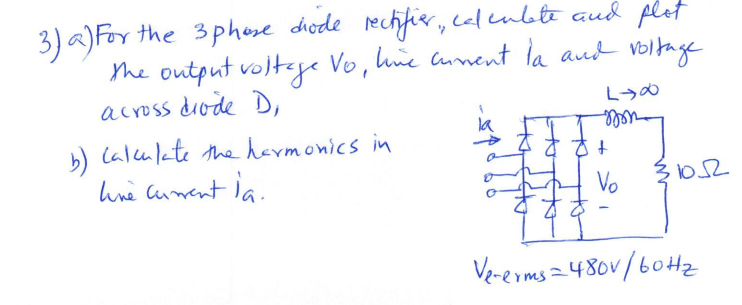 3) a) For the 3 phase diode rectifier, calculate and plot
the output voltage Vo, line current ia and voltage
across diode D1
b) Calculate the harmonics in
line current ia.
L→∞
ia
+
Vo
-
10Ω
Vℓ-ℓ rms = 480V/60Hz